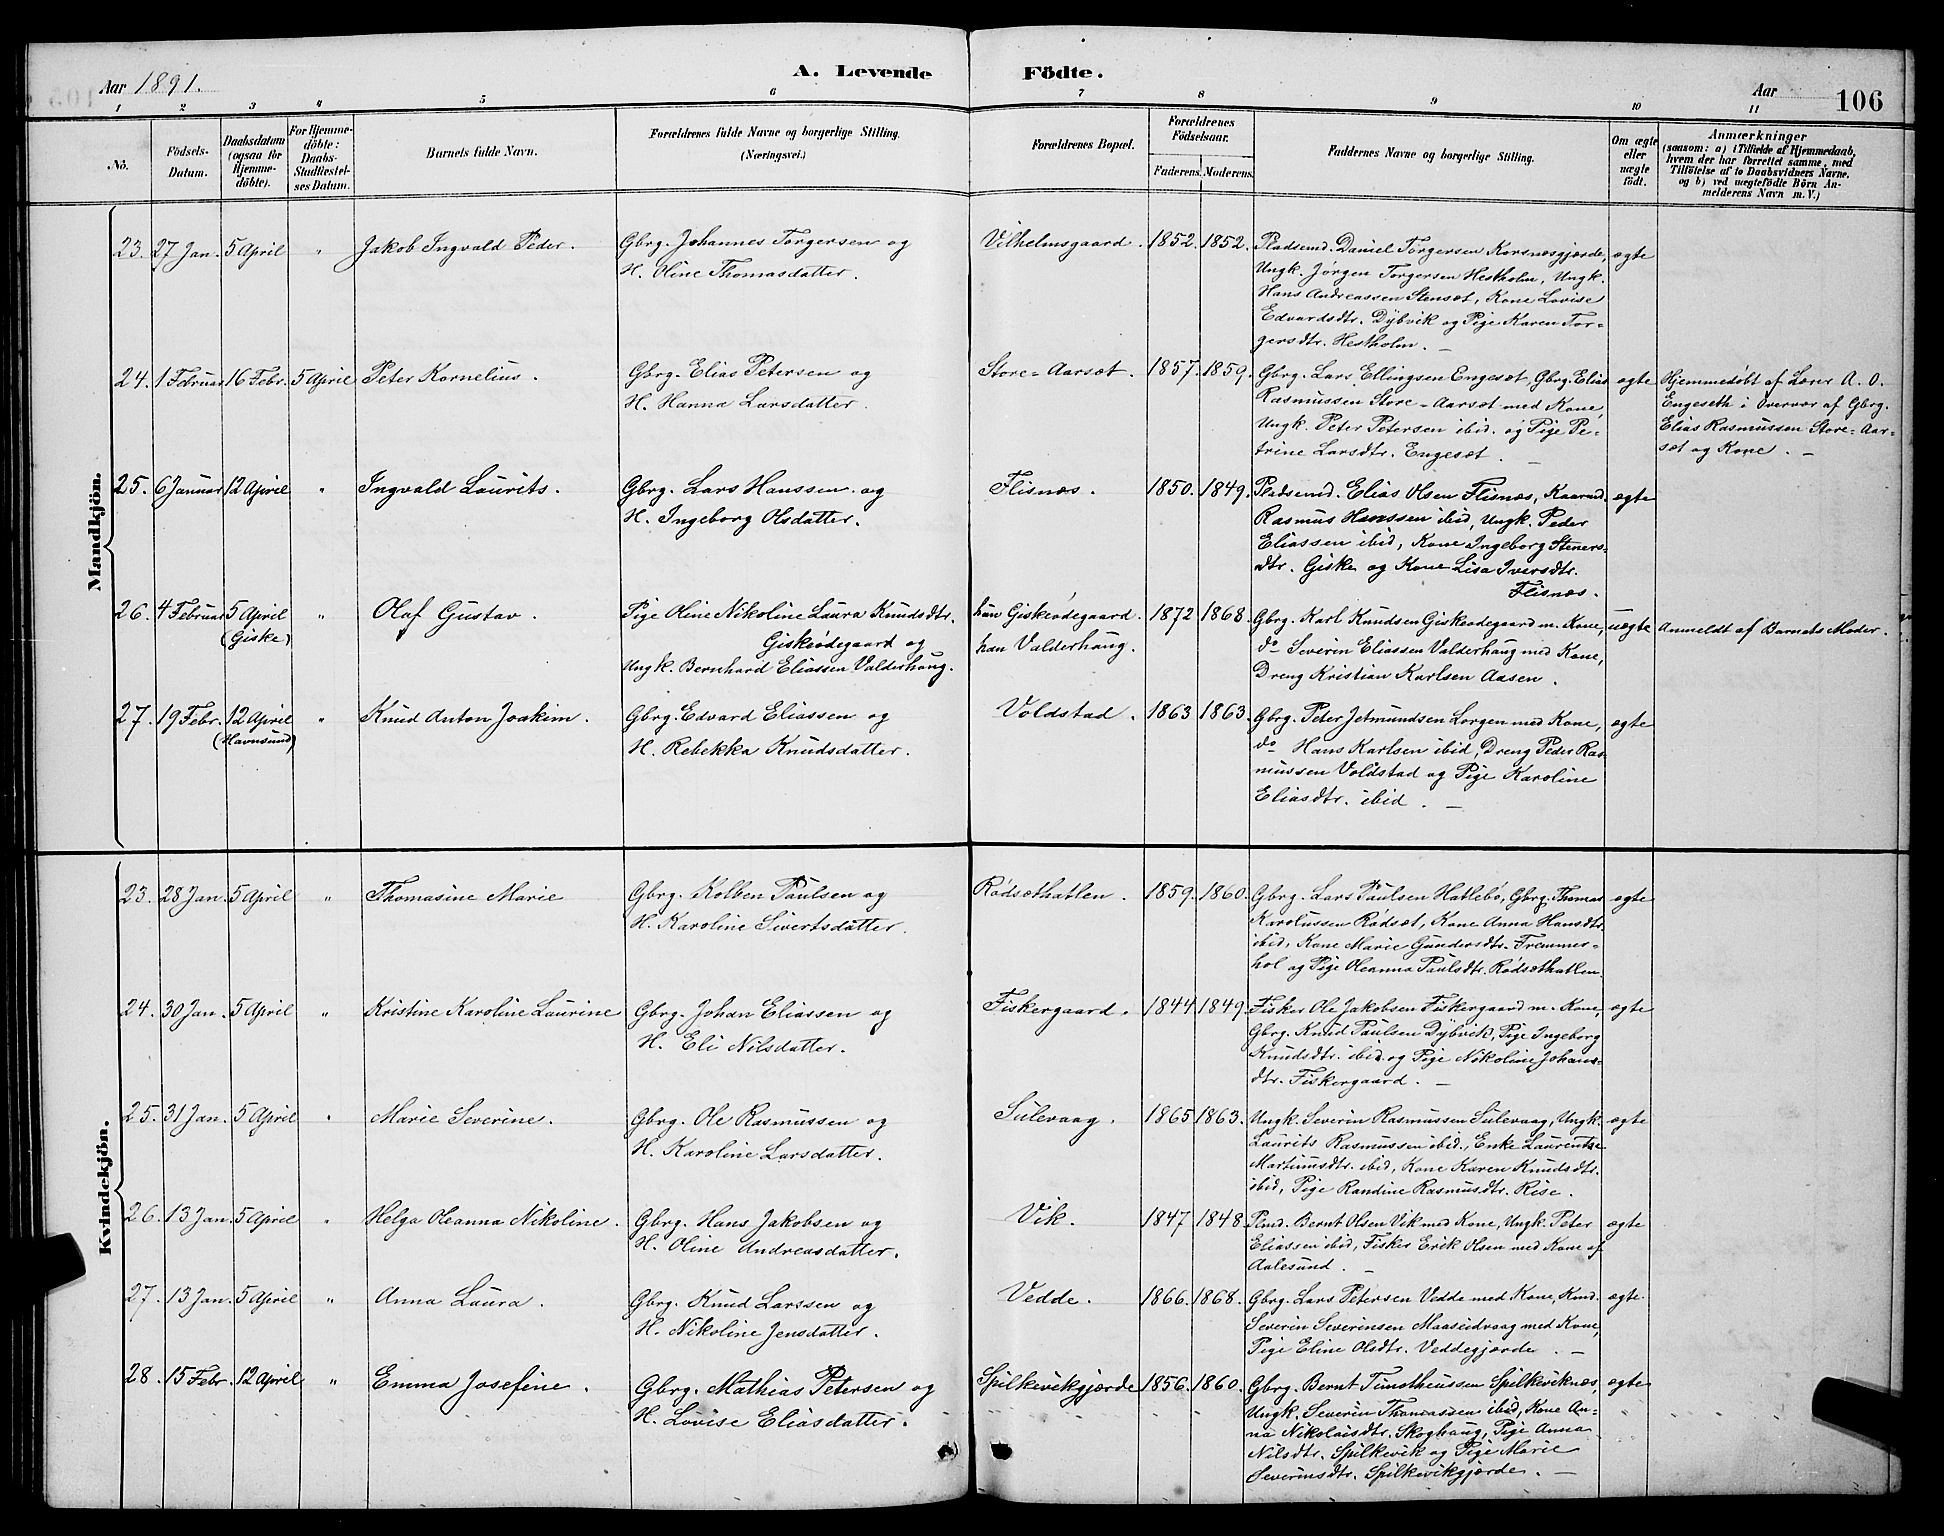 Aar 1891.
A. Levende Födte.
Aar
106
1 2 3 4 5 6 7 8 9 10 11
No.
Födsels-
Datum.
Daabsdatum
(ogsaa for
Hjemme-
döbte).
For Hjemme-
döbte:
Daabs-
Stadfæstel-
ses Datum.
Barnets fulde Navn.
Forældrenes fulde Navne og borgerlige Stilling.
(Næringsvei.)
Forældrenes Bopæl.
Forældrenes
Födselsaar.
Faderens. Moderens.
Faddernes Navne og borgerlige Stilling.
Om ægte
eller
uægte
født.
Anmærkninger
(saasom: a) i Tilfælde af Hjemmedaab,
hvem der har forrettet samme, med
Tilföielse af to Daabsvidners Navne.
og b) ved uægtefödte Börn An-
melderens Navn m. V.)
Mandkjön.
23. 27 Jan. 5 April " Jakob Ingvald Peder. Gbrg. Johannes Torgersen og
H. Oline Thomasdatter.
Vilhelmsgaard. 1852. 1852.
Pladsmd. Daniel Torgersen Korsnæsgjærde, ægte
Ungk. Jørgen Torgersen Hestholm, Ungk.
Hans Andreassen Stensæt, Kone Lovise
Edvardsdtr. Dybvik og Pige Karen Tor-
gersdtr. Hestholm. —
24. 1 Februar 16 Febr. 5 April Peter Kornelius. Gbrg. Elias Petersen og
H. Hanna Larsdatter.
Store-Aarsæt. 1857. 1859.
Gbrg. Lars Ellingsen Engesæt, Gbrg. Elias ægte
Rasmussen Store-Aarsæt med Kone,
Ungk. Peter Petersen ibid. og Pige Pe-
trine Larsdtr. Engesæt. —
Hjemmedøbt af Lærer A. O.
Engeseth i Overvær af Gbrg.
Elias Rasmussen Store-Aar-
sæt og Kone. —
25. 6 Januar 12 April " Ingvald Laurits. Gbrg. Lars Hanssen og
H. Ingeborg Olsdatter.
Flisnæs. 1850. 1849.
Pladsemd. Elias Olsen Flisnæs, Kaarmd. ægte
Rasmus Hanssen ibid, Ungk. Peder
Eliassen ibid, Kone Ingeborg Steners-
dtr. Giske og Kone Lisa Iversdtr.
Flisnæs.
26. 4 Februar 5 April " Olaf Gustav. Pige Oline Nikoline Laura Knudsdtr.
(Giske)
Giskeødegaard og
Ungk. Bernhard Eliassen Valderhaug.
hun Giskeødegaard. 1872 1868.
han Valderhaug.
Gbrg. Karl Knudsen Giskeødegaard m. Kone, uægte
do Severin Eliassen Valderhaug med Kone,
Dreng Kristian Karlsen Aasen.
Anmeldt af Barnets Moder.
27. 19 Febr. 12 April " Knud Anton Joakim. Gbrg. Edvard Eliassen og
(Havnsund)
H. Rebekka Knudsdatter.
Voldstad. 1863 1863.
Gbrg. Peter Jetmundsen Lorgen med Kone, ægte
do Hans Karlsen ibid, Dreng Peder Ras-
mussen Voldstad og Pige Karoline
Eliasdtr. ibid. —
Kvindekjön.
23. 28 Jan. 5 April " Thomasine Marie Gbrg. Kolben Paulsen og
H. Karoline Sivertsdatter.
Rødsæthatlen. 1859. 1860.
Gbrg. Lars Paulsen Hatlebø, Gbrg. Thomas ægte
Karolussen Rødsæt, Kone Anna Hansdtr.
ibid, Kone Marie Gundersdtr. Fremmer-
hol og Pige Oleanna Paulsdtr. Rødsæthatlen
24. 30 Jan. 5 April " Kristine Karoline Laurine Gbrg. Johan Eliassen og
H. Eli Nilsdatter.
Fiskergaard. 1844 1849.
Fisker Ole Jakobsen Fiskergaard m. Kone, ægte
Gbrg. Knud Paulsen Dybvik, Pige Ingeborg
Knudsdtr. ibid. og Pige Nikoline Johans-
dtr. Fiskergaard. —
25. 31 Jan. 5 April " Marie Severine. Gbrg. Ole Rasmussen og
H. Karoline Larsdatter.
Sulevaag. 1865 1863.
Ungk. Severin Rasmussen Sulevaag, Ungk. ægte
Laurits Rasmussen ibid., Enke Laurentse
Martinusdtr. ibid, Kone Karen Knudsdtr.
ibid, Pige Randine Rasmusdtr. Rise.
26. 13 Jan. 5 April " Helga Oleanna Nikoline. Gbrg. Hans Jakobsen og
H. Oline Andreasdatter.
Vik. 1847 1848
Pmd. Bernt Olsen Vik med Kone, Ungk. Peter ægte
Eliassen ibid, Fisker Erik Olsen med Kone af
Aalesund. —
27. 13 Jan. 5 April " Anna Laura. Gbrg. Knud Larssen og
H. Nikoline Jensdatter.
Vedde. 1866. 1868.
Gbrg. Lars Petersen Vedde med Kone, Kmd. ægte
Severin Severinsen Maaseidvaag med Kone,
Pige Eline Olsdtr. Veddegjærde. —
28. 15 Febr. 12 April " Emma Josefine. Gbrg. Mathias Petersen og
H. Lovise Eliasdatter.
Spilkevikgjærde 1856. 1860.
Gbrg. Bernt Timotheussen Spilkeviknæs, ægte
Ungk. Severin Thomassen ibid, Kone An-
na Nikolaisdtr. Skoghaug, Pige Anna
Nilsdtr. Spilkevik og Pige Marie
Severinsdtr. Spilkevikgjærde. —